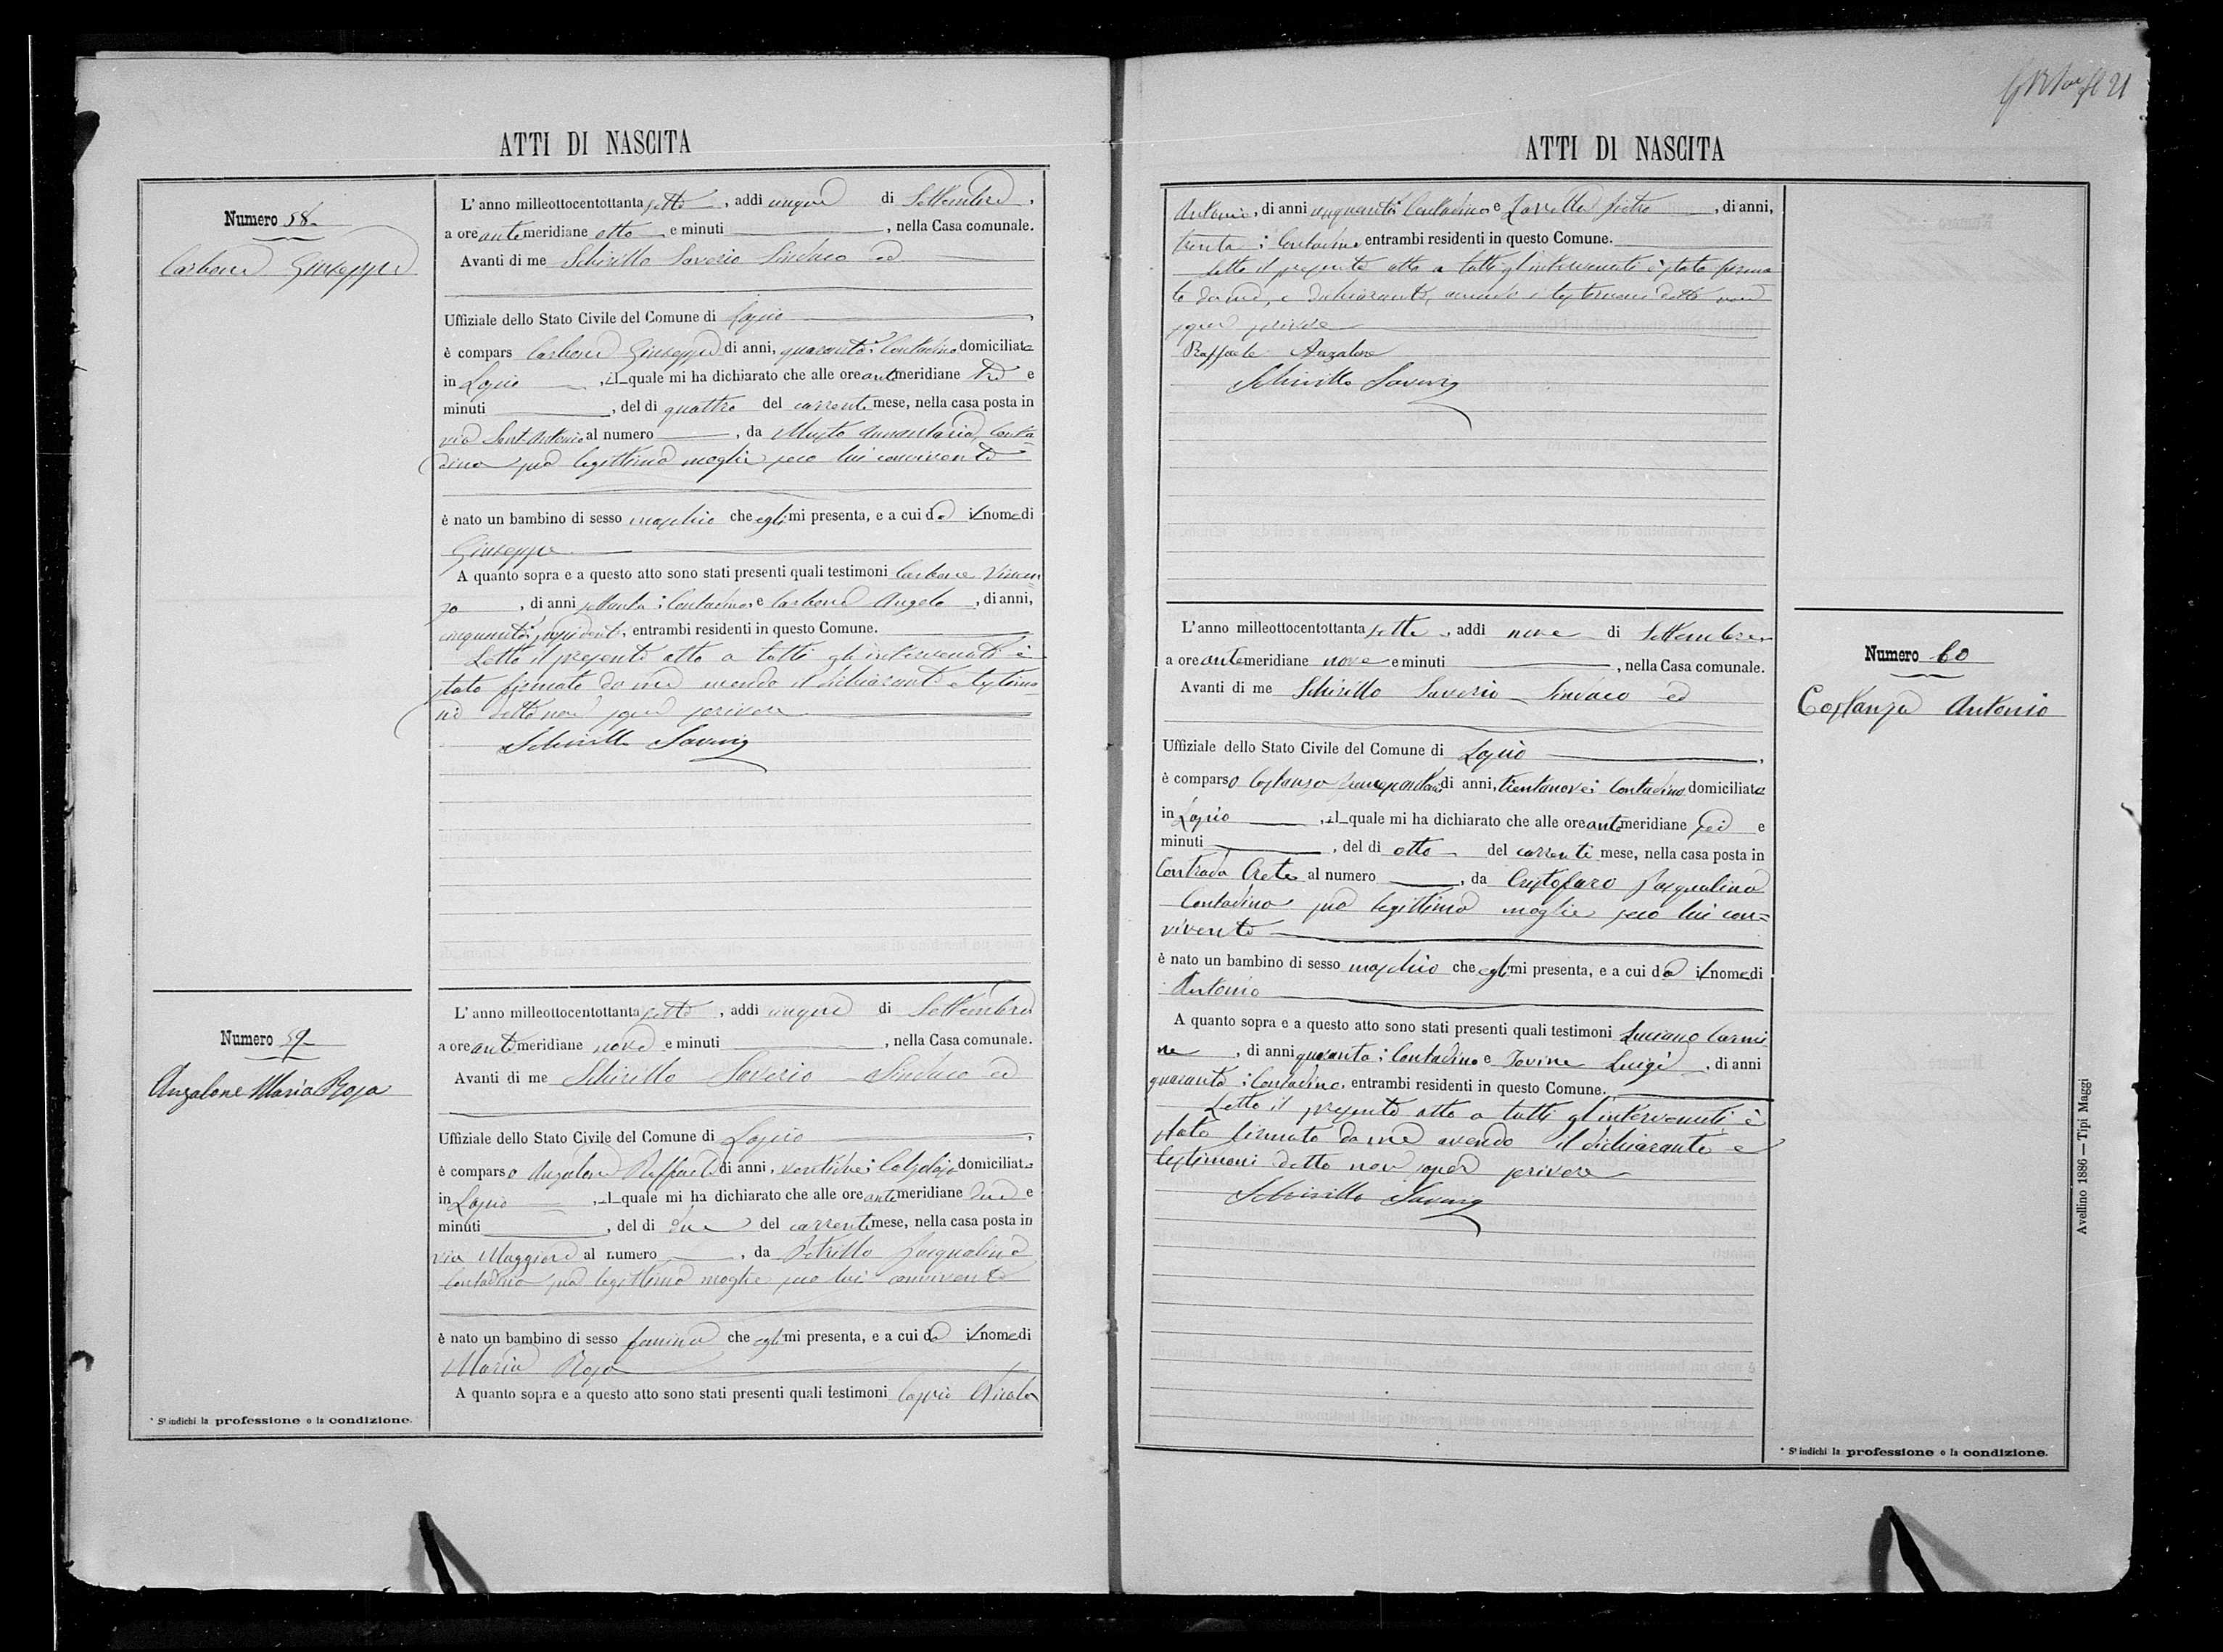 ATTI DI NASCITA
Numero 58
Carbone Giuseppe
L' anno milleottocentottanta sette, addì cinque di Settembre,
a ore antemeridiane otto e minuti, nella Casa comunale.
Avanti di me Schirillo Saverio Sindaco ed
Uffiziale dello Stato Civile del Comune di Lapio
è compars Carbone Giuseppe di anni, quaranta; Contadino domiciliato
in Lapio, il quale mi ha dichiarato che alle ore antemeridiane tre e
minuti, del dì quattro del corrente mese, nella casa posta in
via Sant'Antonio al numero, da Musto Annamaria, conta
dina sua legittima moglie seco lui convivente
è nato un bambino di sesso maschio che egli mi presenta, e a cui dà il nome di
Giuseppe
A quanto sopra e a questo atto sono stati presenti quali testimoni Carbone Vincen
zo, di anni settanta; Contadino, e Carbone Angelo, di anni,
cinquanta; possidente, entrambi residenti in questo Comune.
Letto il presente atto a tutti gl'intervenuti è
stato firmato da me avendo il dichiarante e testimo
ni detto non saper scrivere
Schirillo Saverio
Numero 59
Anzalone Maria Rosa
L' anno milleottocentottanta sette, addì cinque di Settembre
a ore antimeridiane nove e minuti, nella Casa comunale.
Avanti di me Schirillo Saverio Sindaco ed
Uffiziale dello Stato Civile del Comune di Lapio
è comparso Anzalone Raffaele di anni, Calzolajo domiciliato
in Lapio, il quale mi ha dichiarato che alle ore antemeridiane due e
minuti, del dì due del corrente mese, nella casa posta in
via Maggiore al numero, da Petrillo Pasqualina
Contadina sua legittima moglie seco lui convivente
è nato un bambino di sesso femina che egli mi presenta, e a cui dà il nome di
Maria Rosa
A quanto sopra e a questo atto sono stati presenti quali testimoni Nicola
* Si indichi la professione o la condizione.
21
ATTI DI NASCITA
Antonio, di anni cinquanta; Contadino e Pietro, di anni,
trenta; Contadino entrambi residenti in questo Comune.
Letto il presente atto a tutti gl'intervenuti è stato firma
to da me, e dichiarante, avendo i testimoni detto non
saper scrivere
Raffaele Anzalone
Schirillo Saverio
Numero 60
Costanza Antonio
L'anno milleottocentottanta sette, addì nove di Settembre
a ore antemeridiane nove e minuti, nella Casa comunale.
Avanti di me Schirillo Saverio Sindaco ed
Uffiziale dello Stato Civile del Comune di Lapio,
è comparso Costanzo di anni, trentanove; Contadino domiciliato
in Lapio, il quale mi ha dichiarato che alle ore antemeridiane sei e
minuti, del dì otto del corrente mese, nella casa posta in
Contrada Crete al numero, da Cristofaro Pasqualina
Contadina sua legittima moglie seco lui con=
vivente
è nato un bambino di sesso maschio che egli mi presenta, e a cui dà il nome di
Antonio
A quanto sopra e a questo atto sono stati presenti quali testimoni Luciano Carmi
ne, di anni quaranta; Contadino e Iovine Luigi, di anni
quaranta; Contadino, entrambi residenti in questo Comune.
Letto il presente atto a tutti gl'intervenuti è
stato firmato da me avendo il dichiarante e
testimoni detto non saper scrivere
Schirillo Saverio
* Si indichi la professione o la condizione.
Avellino 1886 — Tipi Maggi